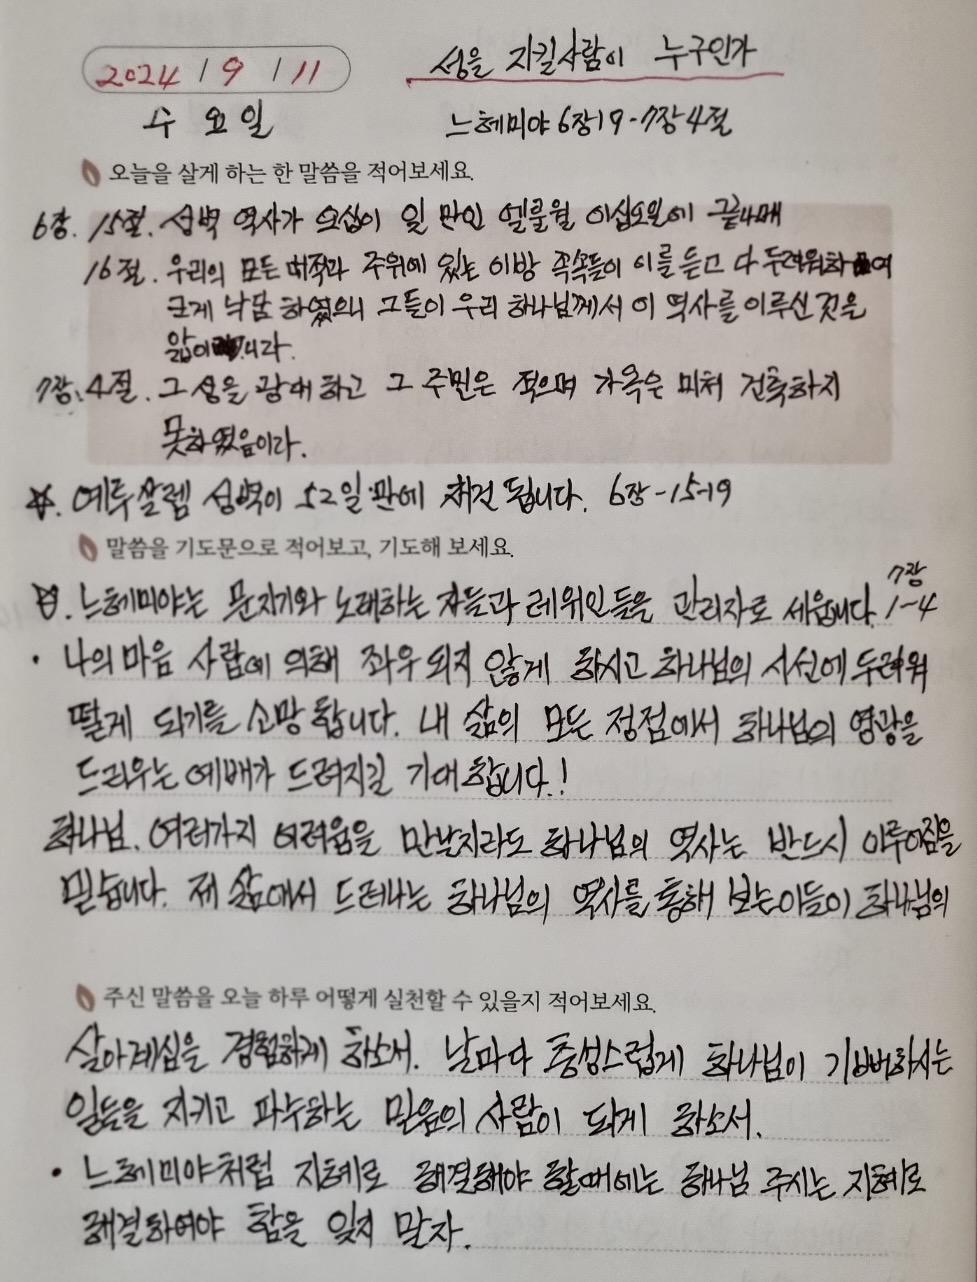 2024 / 9 / 11
성을 지킬사람이 누구인가
수요일
느헤미야 6장19-7장4절
오늘을 살게 하는 한 말씀을 적어보세요.
6장. 15절. 성벽 역사가 오십이 일 만인 엘룰월 이십오일에 끝나매
16절. 우리의 모든 대적과 주위에 있는 이방 족속들이 이를 듣고 다 두려워하여
크게 낙담 하였으니 그들이 우리 하나님께서 이 역사를 이루신 것을
앎이니라.
7장. 4절. 그 성읍은 광대 하고 그 주민은 적으며 가옥은 미처 건축하지
못하였음이라.
☆. 예루살렘 성벽이 52일만에 재건 됩니다. 6장-15-19
말씀을 기도문으로 적어보고, 기도해 보세요.
7장
느헤미야는 문지기와 노래하는 자들과 레위인들을 관리자로 세웁니다. 1-4
• 나의 마음 사람에 의해 좌우 되지 않게 하시고 하나님의 시선에 두려워
떨게 되기를 소망 합니다. 내 삶의 모든 정점에서 하나님의 영광을
드리우는 예배가 드려지길 기대 합니다.!
하나님. 여러가지 어려움을 만날지라도 하나님의 역사는 반드시 이루어짐을
믿습니다. 제 삶에서 드러나는 하나님의 역사를 통해 보는이들이 하나님의
주신 말씀을 오늘 하루 어떻게 실천할 수 있을지 적어보세요.
살아계심을 경험하게 하소서. 날마다 충성스럽게 하나님이 기뻐하시는
일들을 지키고 파수하는 믿음의 사람이 되게 하소서.
• 느헤미야처럼 지혜로 해결해야 할때에는 하나님 주시는 지혜로
해결하여야 함을 잊지 말자.